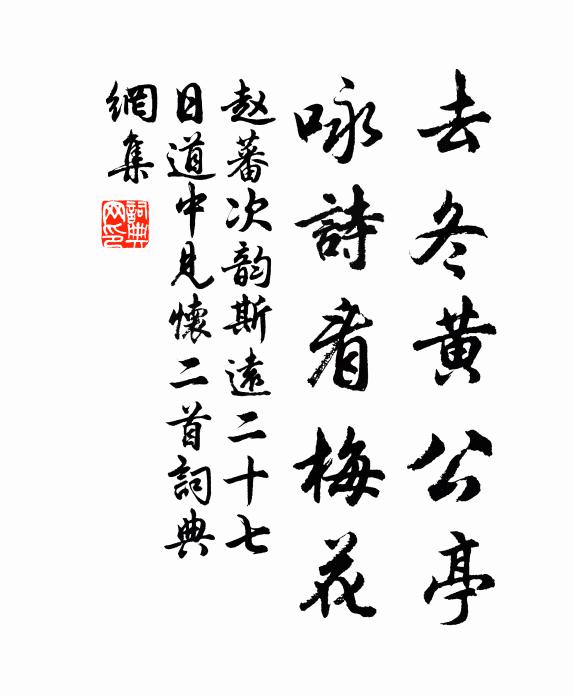 去冬黄公亭
咏詩看梅花
赵蕃次韵斯遠二十七
日道中見懷二首詞典
網集
詞典
网印